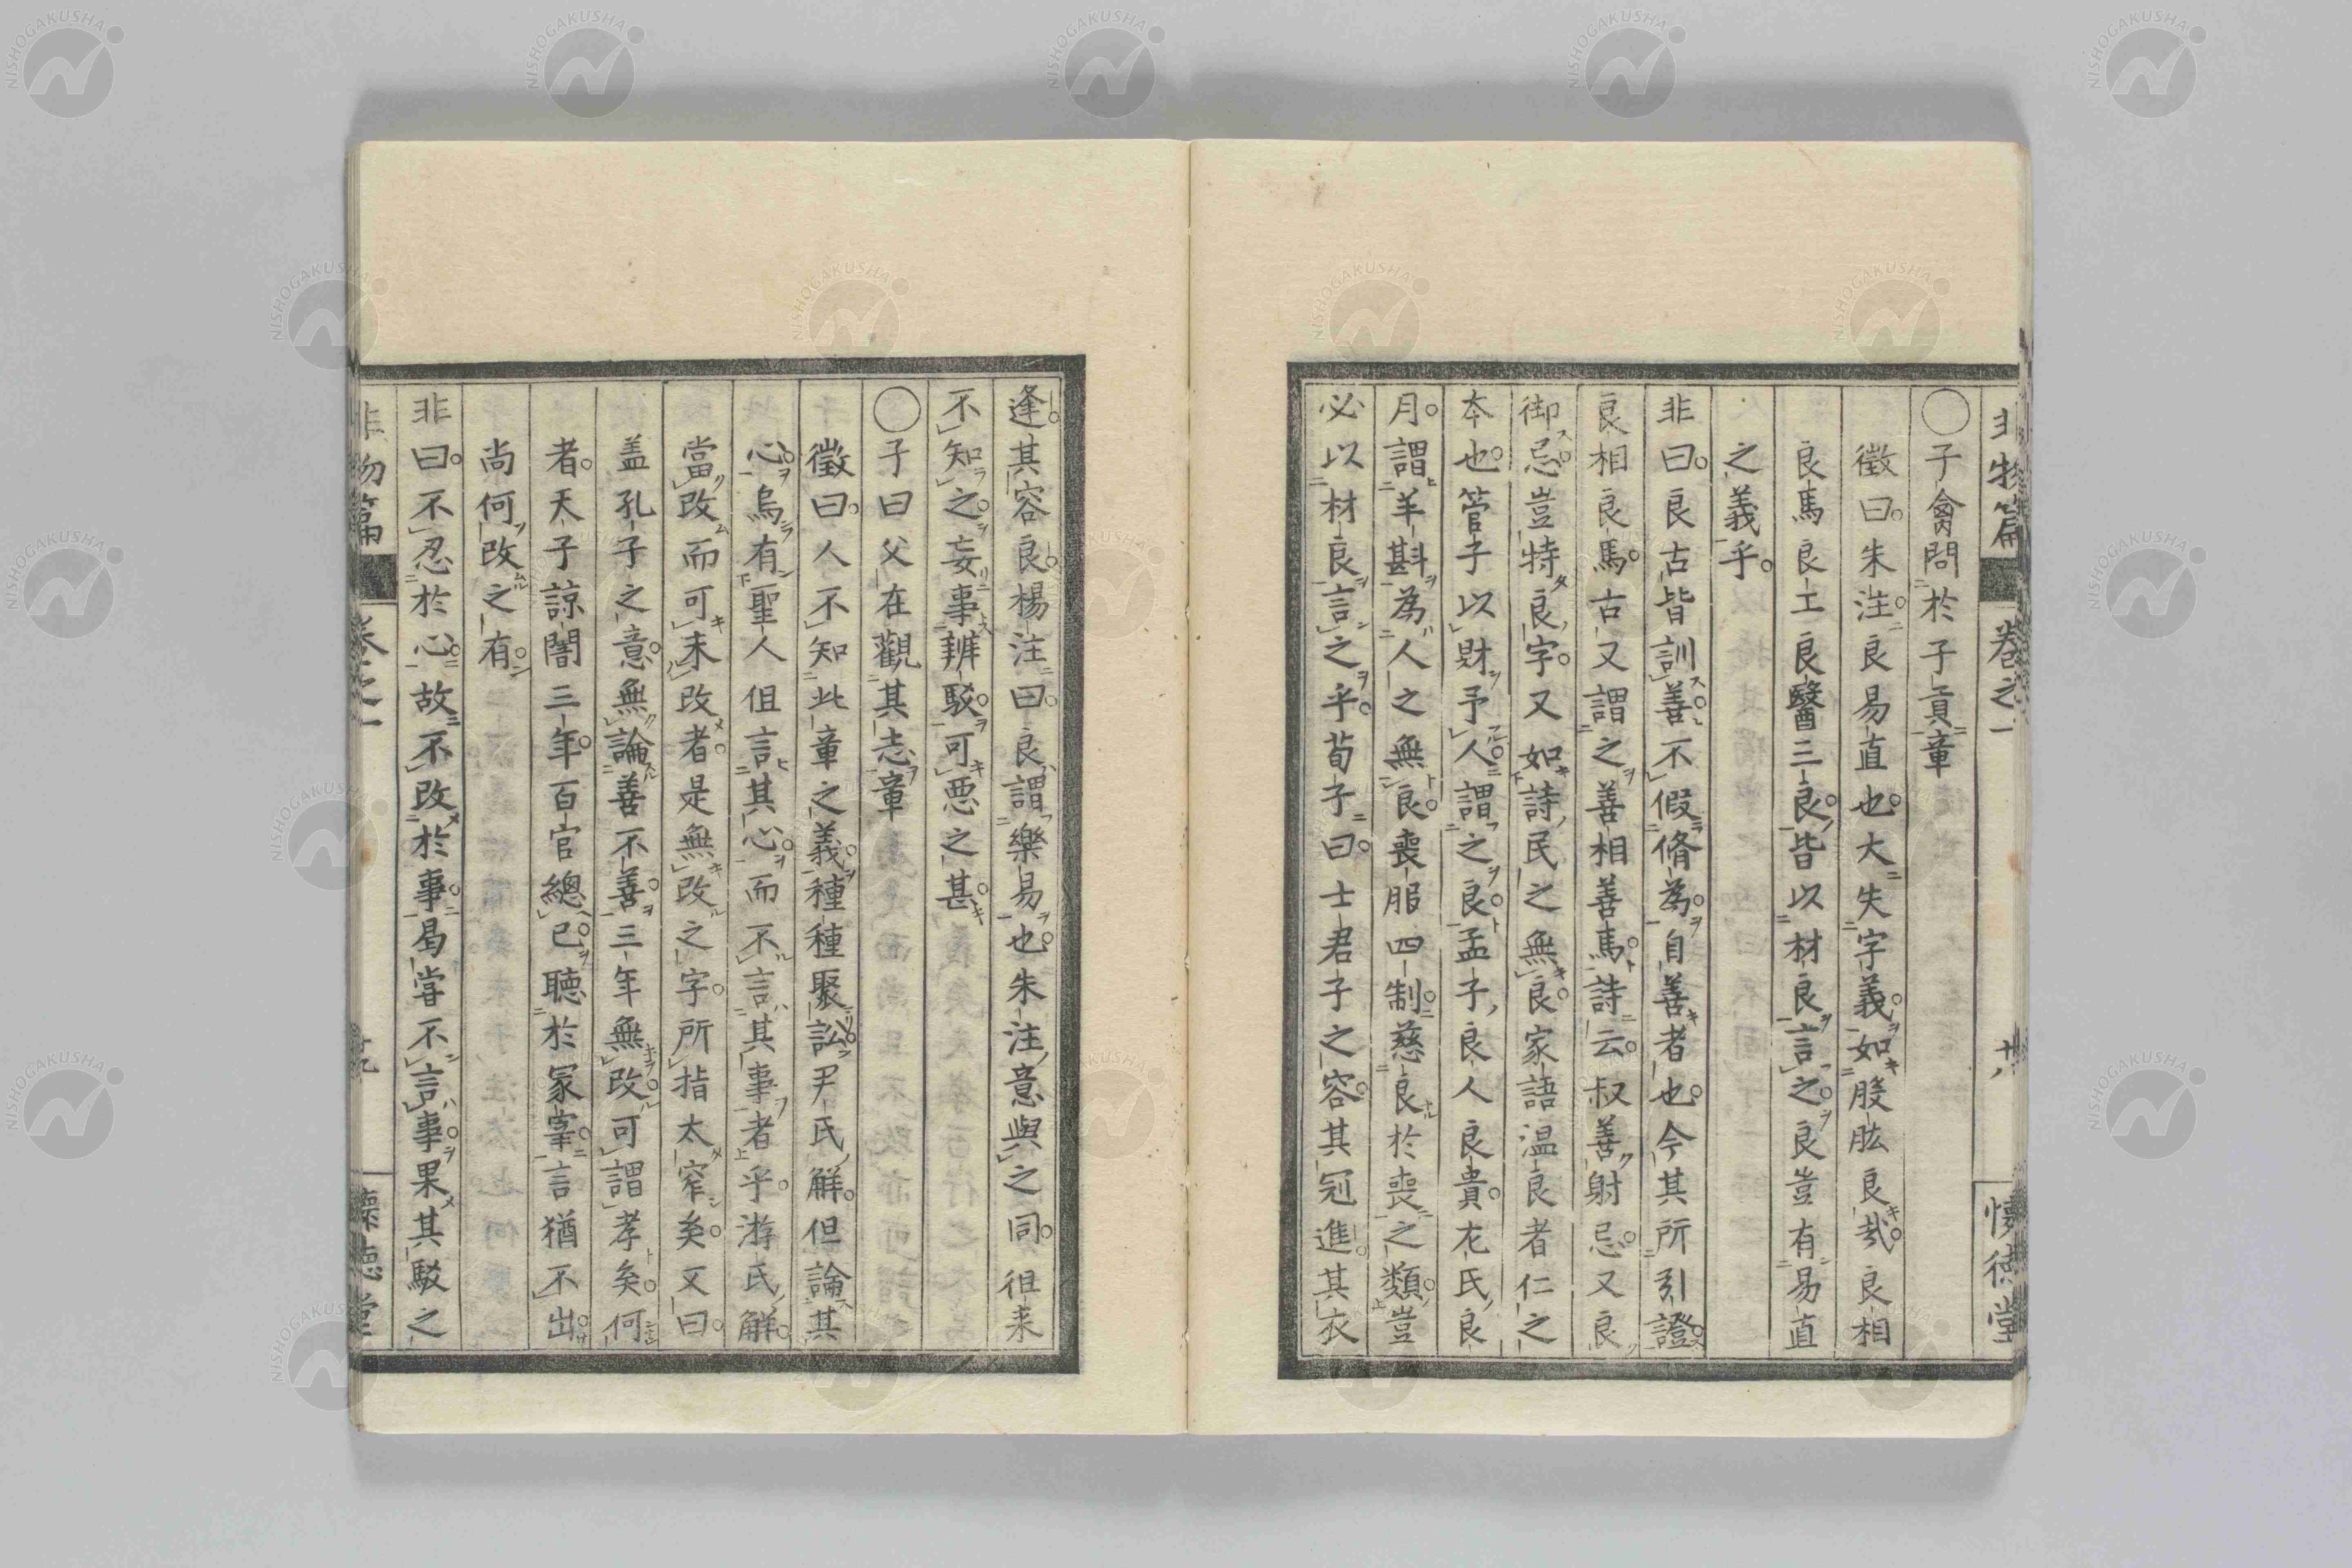 非物篇 卷之一 廿八 懷德堂
○子禽問於子貢章
徵曰朱注良易直也大失字義如股肱良哉良相
良馬良工良醫三良皆以材良言之良豈有易直
之義乎
非曰良古皆訓善不假脩為自善者也今其所引證
良相良馬古又謂之善相善馬詩云叔善射忌又良
御忌豈特良字又如詩民之無良家語温良者仁之
本也管子以財予人謂之良孟子良人良貴左氏良
月謂羊斟為人之無良喪服四制慈良於喪之類豈
必以材良言之乎荀子曰士君子之容其冠進其衣
逢其容良楊注曰良謂樂易也朱注意與之同徂来
不知之妄事辨駁可悪之甚
○子曰父在觀其志章
徵曰人不知此章之義種種聚訟尹氏解但論其
心烏有聖人但言其心而不言其事者乎游氏解
當改而可未改者是無改之字所指太窄矣又曰
盖孔子之意無論善不善三年無改可謂孝矣何
者天子諒闇三年百官總已聽於冢宰言猶不出
尚何改之有
非曰不忍於心故不改於事曷嘗不言事果其駁之
非物篇 卷之一 廿九 懷德堂
NISHOGAKUSHA